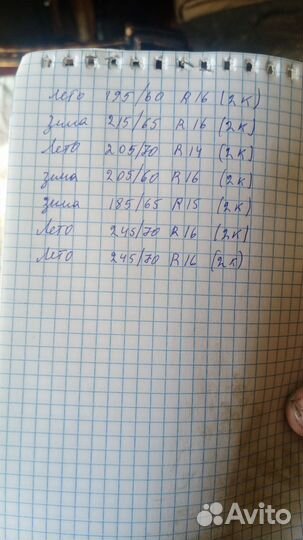 Лето 195/60 R16 (2к)
Зима 215/65 R16 (2к)
Лето 205/70 R14 (2к)
Зима 205/60 R16 (2к)
Зима 185/65 R15 (2к)
Лето 245/70 R16 (2к)
Лето 245/70 R16 (2к)
Avito